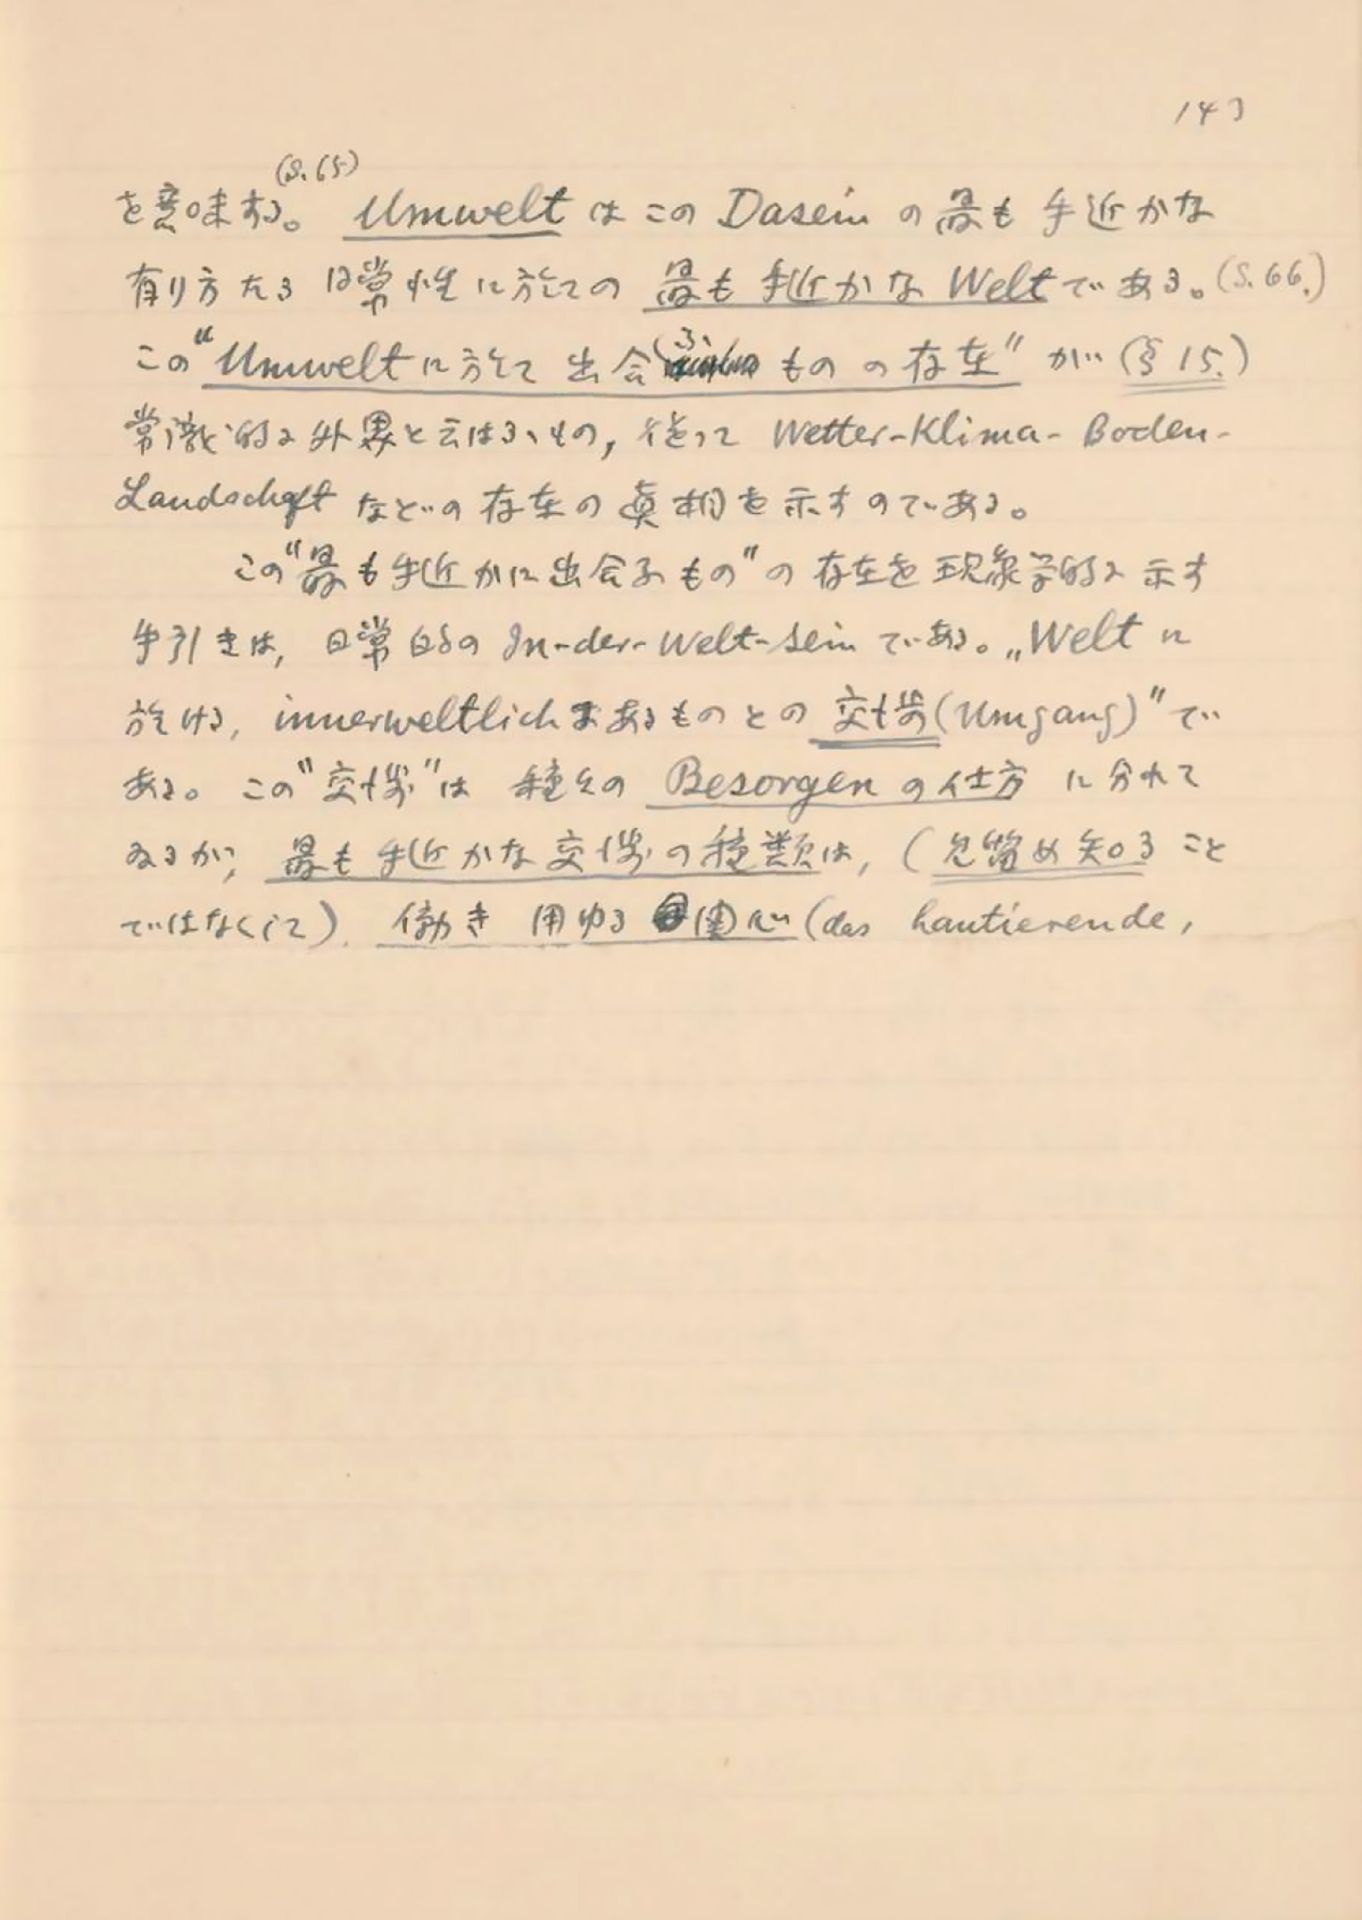 143
(S.65)
を意味する。 Umwelt はこの Dasein の最も手近かな
有り方たる日常性に於ての最も手近かな Welt である。(S.66.)
この“Umwelt に於て出会ふものの存在” が (§15.)
常識的に外界と云はるゝもの, 従って Wetter-Klima-Boden-
Landschaft などの存在の真相を示すのである。
この“最も手近かに出会ふもの”の存在を現象学的に示す
手引きは, 日常的の In-der-Welt-sein である。„Welt に
於ける, innerweltlich にあるものとの交渉(Umgang)”で
ある。この“交渉”は 種々の Besorgen の仕方 に分れて
ゐるが, 最も手近かな交渉の種類は, (見留め知ること
ではなくして). 働き用ゆる関心 (das hantierende,